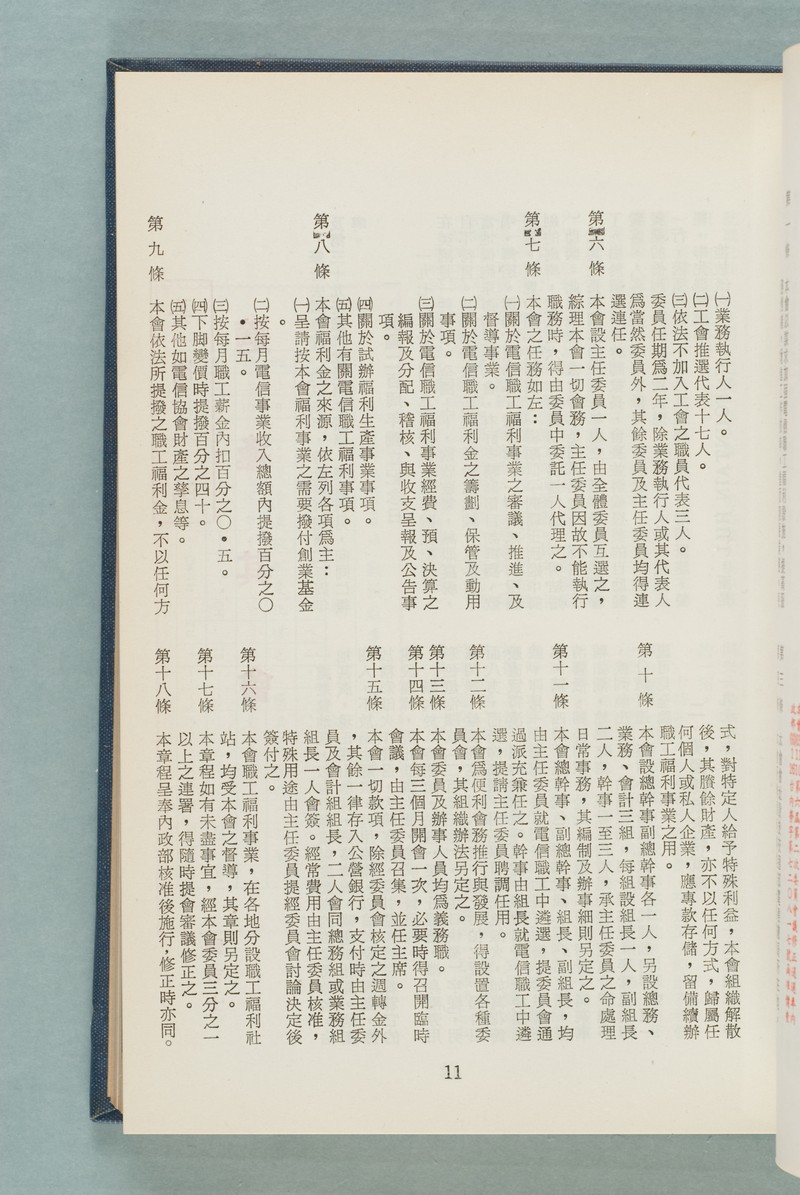 ㈠業務執行人一人。
㈡工會推選代表十七人。
㈢依法不加入工會之職員代表三人。
委員任期爲二年，除業務執行人或其代表人
爲當然委員外，其餘委員及主任委員均得連
選連任。
第六條　本會設主任委員一人，由全體委員互選之，
綜理本會一切會務，主任委員因故不能執行
職務時，得由委員中委託一人代理之。
第七條　本會之任務如左：
㈠關於電信職工福利事業之審議、推進、及
督導事業。
㈡關於電信職工福利金之籌劃、保管及動用
事項。
㈢關於電信職工福利事業經費、預、決算之
編報及分配、稽核、與收支呈報及公告事
項。
㈣關於試辦福利生產事業事項。
㈤其他有關電信職工福利事項。
第八條　本會福利金之來源，依左列各項爲主：
㈠呈請按本會福利事業之需要撥付創業基金
。
㈡按每月電信事業收入總額內提撥百分之〇
•一五。
㈢按每月職工薪金內扣百分之〇•五。
㈣下脚變價時提撥百分之四十。
㈤其他如電信協會財產之孳息等。
第九條　本會依法所提撥之職工福利金，不以任何方
式，對特定人給予特殊利益，本會組織解散
後，其賸餘財產，亦不以任何方式，歸屬任
何個人或私人企業，應專款存儲，留備續辦
職工福利事業之用。
第十條　本會設總幹事副總幹事各一人，另設總務、
業務、會計三組，每組設組長一人，副組長
二人，幹事一至三人，承主任委員之命處理
日常事務，其編制及辦事細則另定之。
第十一條　本會總幹事、副總幹事、組長、副組長，均
由主任委員就電信職工中遴選，提委員會通
過派充兼任之。幹事由組長就電信職工中遴
選，提請主任委員聘調任用。
第十二條　本會爲便利會務推行與發展，得設置各種委
員會，其組織辦法另定之。
第十三條　本會委員及辦事人員均爲義務職。
第十四條　本會每三個月開會一次，必要時得召開臨時
會議，由主任委員召集，並任主席。
第十五條　本會一切款項，除經委員會核定之週轉金外
，其餘一律存入公營銀行，支付時由主任委
員及會計組組長，二人會同總務組或業務組
組長一人會簽。經常費用由主任委員核准，
特殊用途由主任委員提經委員會討論決定後
簽付之。
第十六條　本會職工福利事業，在各地分設職工福利社
站，均受本會之督導，其章則另定之。
第十七條　本章程如有未盡事宜，經本會委員三分之一
以上之連署，得隨時提會審議修正之。
第十八條　本章程呈奉內政部核准後施行，修正時亦同。
11